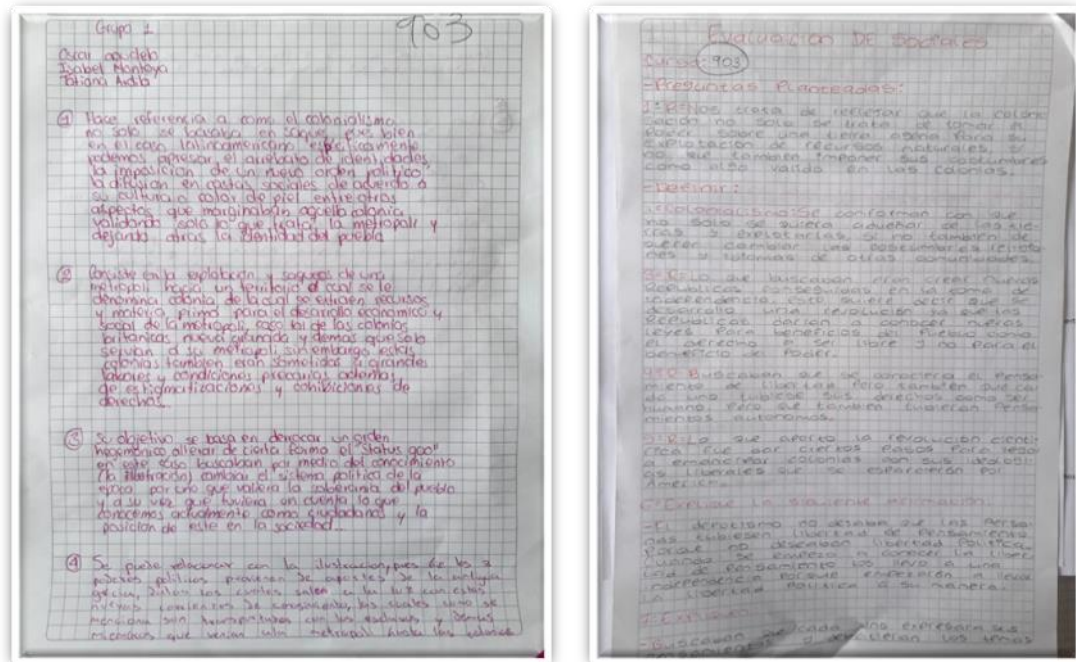 Grupo 1
903
Oscar agudelo
Isabel Montoya
Tatiana Ardila
① Hace referencia a como el colonialismo
no solo se basaba en saqueo, pues bien
en el caso latinoamericano específicamente
podemos apresar el arrebato de identidades,
la imposición de un nuevo orden político
la difusión en castas sociales de acuerdo a
su cultura o color de piel entre otros
aspectos que marginaban aquella colonia
validando solo lo que la metropoli y
dejando atras la identidad del pueblo
② Consiste en la explotación y saqueos de una
metropoli hacia un territorio el cual se le
denomina colonia de la cual se extraen recursos
y materia prima para el desarrollo economico y
social de la metropoli, caso tal de las colonias
britanicas nueva granada y demas que solo
servian a su metropoli sin embargo estas
colonias tambien eran sometidas a grandes
labores y condiciones precarias ademas
de estigmatizaciones y cohibiciones de
derechos.
③ Su objetivo se basa en derrocar un orden
hegemónico alterar de cierta forma el "status quo"
en este caso buscaban por medio del conocimiento
(la ilustración) cambiar el sistema politica de la
epoca por uno que valiera la soberania del pueblo
y a su vez que tuviera en cuenta lo que
conocemos actualmente como ciudadanos y la
posición de este en la sociedad.
④ Se puede relacionar con la ilustracion, pues de los 3
poderes politicos provienen de aportes de la antigua
grecia, los cuales salen a la luz con estas
nuevas corrientes de conocimiento, las cuales como se
menciona son transportadas con los esclavos y demas
mercancias que venian metropoli hasta las colonias
Evaluacion DE Sociales
Curso: 903
-Preguntas Planteadas:
1: R: Nos trata de referirse que la coloni
zación no solo se trata de tomar el
Poder sobre una tierra ajena Para su
explotacion de recursos naturales, si
no que tambien imponer sus costumbres
como algo valido en las colonias.
-Definir:
Colonialismo: Se conforman con que
no solo se quiera adueñar de las tie-
rras y explotarlas si no tambien de
querer cambiar las costumbres religio
nes y idiomas de otras comunidades.
3-R: Lo que buscaban eran creer nuevas
Republicas en la
independencia, esto quiere decir que se
desarrollo una revolución ya que las
Republicas darian a conocer nuevas
leyes Para beneficios del Pueblo como
el derecho a ser libre y no Para el
beneficio del Poder.
Buscaban que se conociera el Pensa-
miento de libertad Pero tambien que ca-
da uno tubiese sus derechos como ser
humano, Pero que tambien tubieran Pensa-
mientos autonomos.
5: R: Lo que aporto la revolución cienti
fica fue dar ciertos Pasos Para
a emancipar colonias con sus
liberales que se esparcieron Por
America.
6: Explique la siguiente
-El no deseaba que las Perso-
nas tubiesen libertad de Pensamiento
Porque no deseaban libertad Politica,
Cuando se empezo a conocer la liber
tad de Pensamiento los llevo a una
independencia Porque empezaron a llevar
libertad Politica a su manera.
7:
-Buscaban que cada uno expresara sus
y los temas